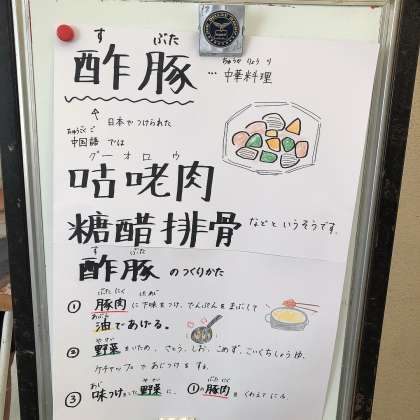 す ぶた
酢豚
ちゅうか りょう り
… 中華料理
日本でつけられた
ちゅうごく ご
中国語 では
グーオロウ
咕咾肉
糖醋排骨 などと いうそうです。
す ぶた
酢豚 のつくりかた
ぶた にく した あじ
① 豚肉 に下味をつけ、でんぷんをまぶして
あぶら
油であげる。
や さい
② 野菜をいため、さとう、しお、こめず、こいくちしょうゆ、
ケチャップ で あじつけ を する。
あじ や さい ぶた にく
③ 味つけした野菜に、①の豚肉を くわえて